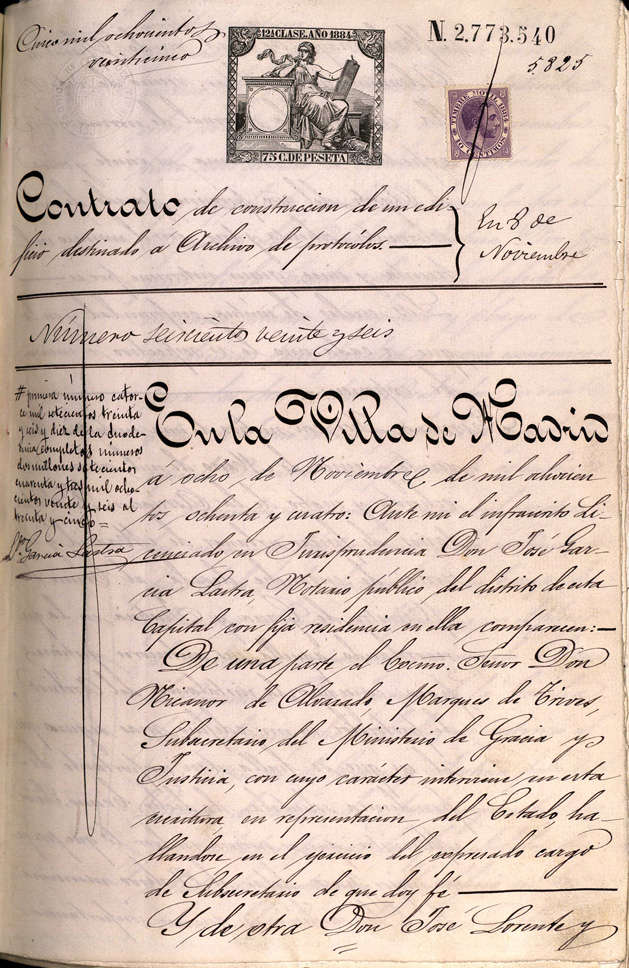 Cinco mil ochocientos
veinticinco
12ª CLASE. AÑO 1884
75 C. DE PESETA
N. 2.773.540
5.825
TIMBRE MOVIL 1882
10 CENTIMOS
Contrato de construccion de un edi-
ficio destinado á Archivo de protócolos.
En 8 de
Noviembre
Número seiscientos veinte y seis
# primera número cator-
ce mil setecientos treinta
y seis y diez de la duode-
cima completos números
dos millones setecientos
cuarenta y tres mil ocho-
cientos veinte y seis al
treinta y cinco =
García Lastra
En la Villa de Madrid
á ocho de Noviembre de mil ochocien
tos ochenta y cuatro: Ante mi el infrascrito Li-
cenciado en Jurisprudencia Don José Gar-
cia Lastra, Notario público del distrito de esta
Capital con fija residencia en ella comparecen:—
De una parte el Excmo. Señor Don
Nicanor de Alvarado Marques de Trives,
Subsecretario del Ministerio de Gracia y
Justicia, con cuyo carácter interviene en esta
escritura, en representacion del Estado, ha-
llandose en el ejercicio del expresado cargo
de Subsecretario de que doy fé
Y de otra Don José Lorente y